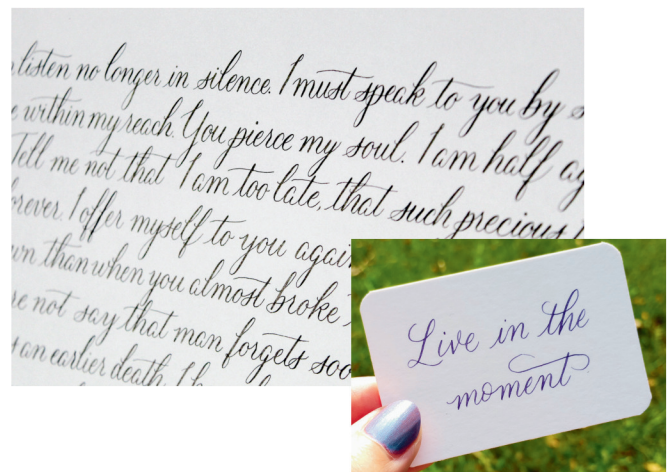 listen no longer in silence. I must speak to you by s
e within my reach. You pierce my soul. I am half ag
Tell me not that I am too late, that such precious
orever. I offer myself to you again
wn than when you almost broke
re not say that man forgets soo
an earlier death. I
Live in the
moment